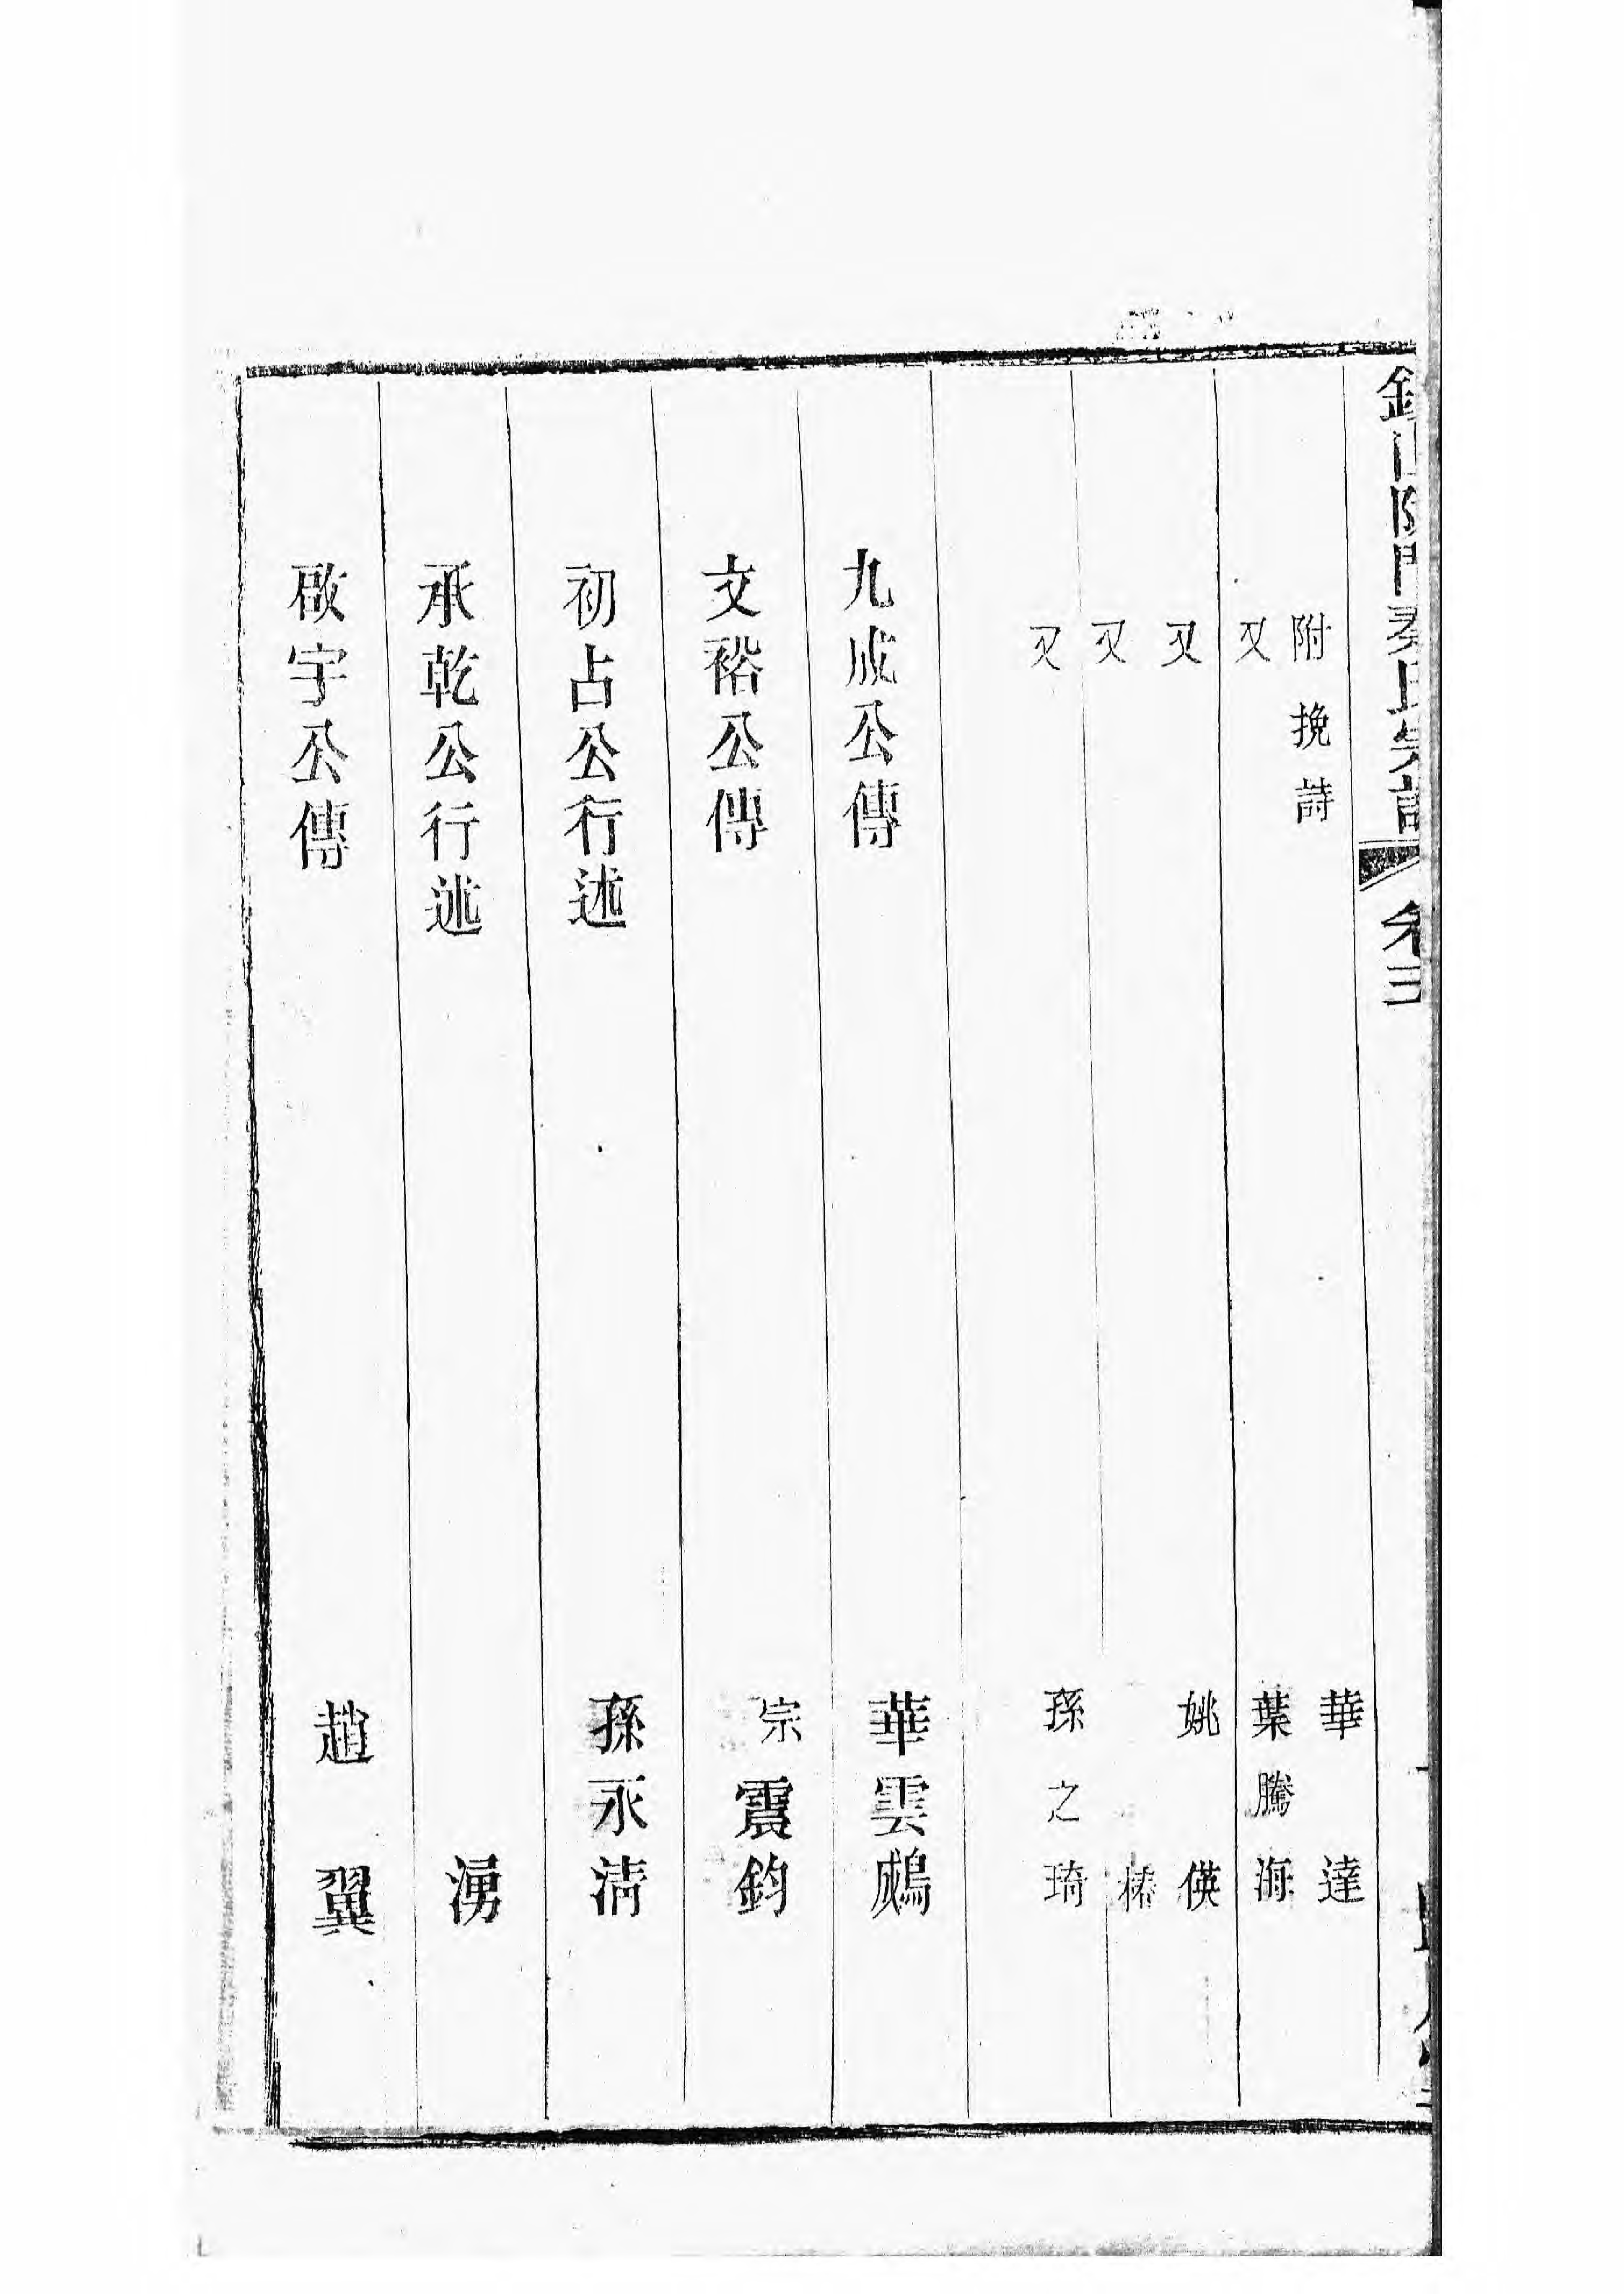 錫山陡門秦氏宗譜 卷三
附挽詩 華達
又 葉騰海
又 姚偀
又 椿
又 孫之琦
九成公傳 華雲鵷
文裕公傳 宗震鈞
初占公行述 孫永清
承乾公行述 湧
啟宇公傳 趙翼